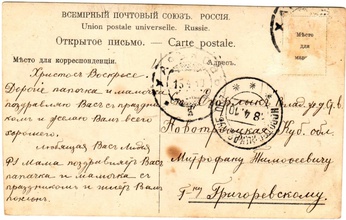 ВСЕМІРНЫЙ ПОЧТОВЫЙ СОЮЗЪ. РОССІЯ.
Union postale universelle. Russie.
Открытое письмо. — Carte postale.
Мѣсто
для
мар
Мѣсто для корреспонденціи.
Адресъ.
Христосъ Воскресе
Дорогіе папочка и мамочка
поздравляю Васъ съ праздни
комъ и желаю Вамъ всего
хорошаго.
любящая Васъ Лида
мама поздравляетъ Васъ
папочка и мамочка съ
праздникомъ и шлетъ Вамъ
поклонъ.
Куб. обл.
Митрофану Тимофеевичу
Григоревскому.